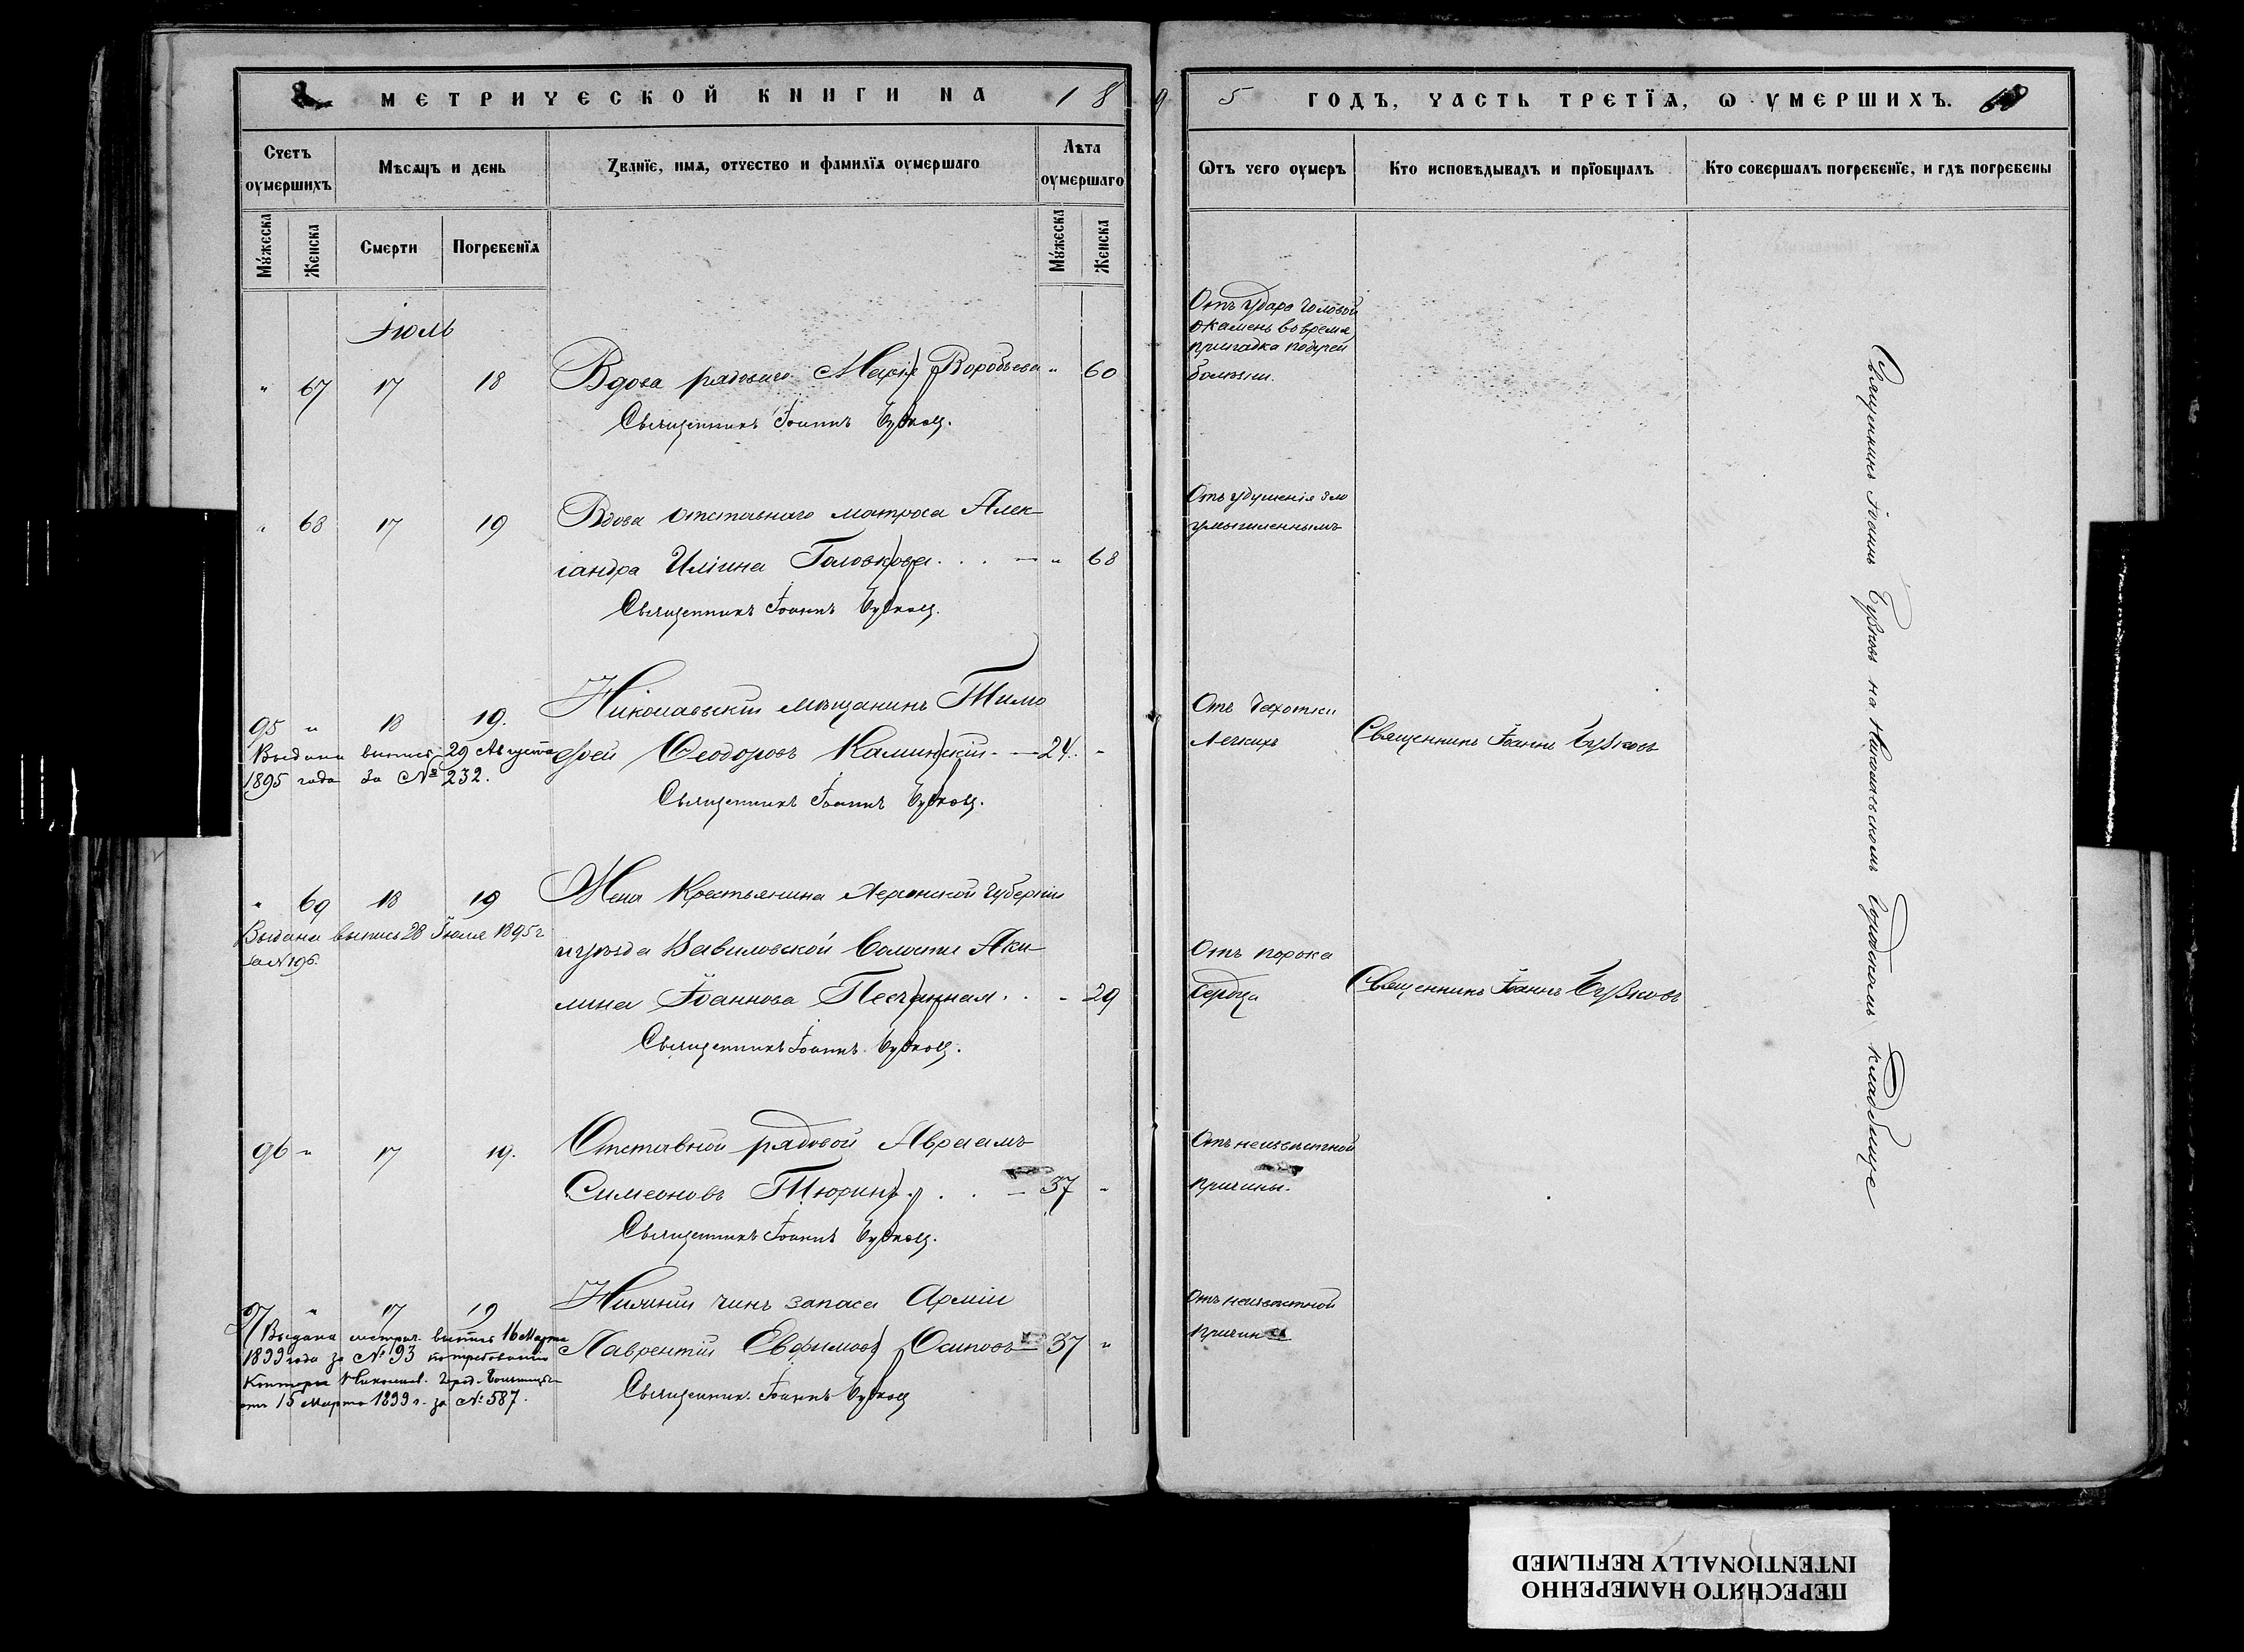 МЕТРИЧЕСКОЙ КНИГИ НА 1 8 9
Счетъ оумершихъ
Мѣсяцъ и день
Званїе, имѧ, отчество и фамилїѧ оумершаго
Лѣта оумершаго
Мꙋжеска
Женска
Смерти
Погребенїѧ
Мꙋжеска
Женска
Іюль
" 67 17 18 Вдова рядоваго Марія Воробьева " 60
Священникъ Іоаннъ
" 68 17 19 Вдова отставнаго матроса Алек-
сандра Иліина Головкова . . . — " 68
Священникъ Іоаннъ
95 " 18 19. Николаевскій мѣщанинъ Тимо
фей Ѳеодоровъ Каминскій - — 24. "
Выдана выпись 29 Августа
1895 года за № 232.
Священникъ Іоаннъ
" 69 18 19 Жена Крестьянина Херсонской губерніи
Выдана выпись 28 Іюля 1895 г
за № 196.
и уѣзда Вавиловской волости Аки-
лина Іоаннова Песчанная . . - 29
Священникъ Іоаннъ
96 " 17 19. Отставной рядовой Авраамъ
Симеоновъ Тюринъ . . . — 37 "
Священникъ Іоаннъ
97 " 17 19 Нижній чинъ запаса Арміи
Лаврентій Евфимовъ Осиповъ — 37 "
Выдана метрич. выпись 16 Марта
1899 года за № 93 по требованію
Конторы Николаев. Город. Больницы
отъ 15 Марта 1899 г. за № 587.
Священник. Іоаннъ
5 ГОДЪ, ЧАСТЬ ТРЕТЇѦ, Ѡ ОУМЕРШИХЪ.
Ѿтъ чего оумеръ
Кто исповѣдывалъ и прїобщалъ
Кто совершалъ погребенїе, и гдѣ погребены
Отъ удара головой
о камень во время
припадка падучей
болѣзни.
Отъ удушенія зло
умышленнымъ
Отъ чахотки
легкихъ
Священникъ Іоаннъ
Отъ порока
сердца
Священникъ Іоаннъ
Отъ неизвѣстной
причины.
Отъ неизвѣстной
причин
Священникъ Іоаннъ на Николаевскомъ городскомъ кладбище
ПЕРЕСНЯТО НАМЕРЕННО
INTENTIONALLY REFILMED